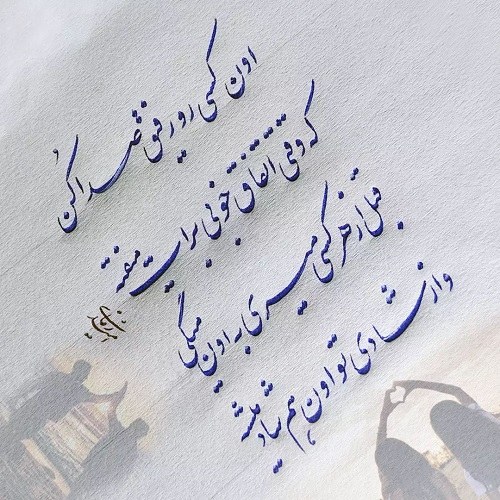 اون کسی رو رفیق صدا کُن
که وقتی اتفاق خوبی برات میفته
قبل از هر کسی میری به اون میگی
و از شادی تو اون هم شاد میشه